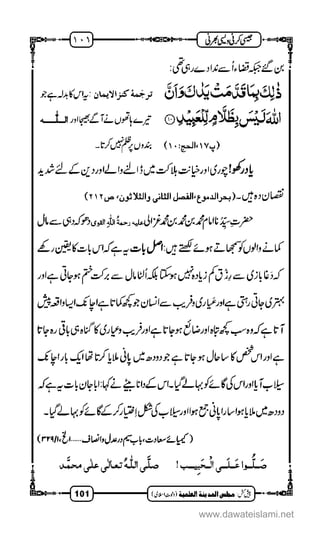 ۱۰۱ جیسی کرنی ویسی بھرنی
بن گئے جبکہ قضاء اُسے ندا دے رہی تھی:
ذٰلِكَ بِمَا قَدَّمَتْ یَدٰكَ وَ اَنَّ ترجمۂ کنز الایمان: یہ اس کا بدلہ ہے جو
اللہَ لَیْسَ بِظَلَّامٍ لِّلْعَبِیْدِ۠ ﴿۱۰﴾ تیرے ہاتھوں نے آگے بھیجا اور اللہ
(پ۱۷، الحج: ۱۰) بندوں پر ظلم نہیں کرتا۔
یاد رکھو! چوری اور خیانت ہلاکت میں ڈالنے والے اور دین کے لئے شدید
نقصان دہ ہیں۔ (بحرالدموع، الفصل الثانی والثلاثون، ص ۲۱۲)
حضرتِ سیِّدُنا امام محمد بن محمد بن محمد غزالی علیہ رحمۃ اللہ القوی دھوکہ دہی سے مال
کمانے والوں کو سمجھاتے ہوئے لکھتے ہیں: اصل بات یہ ہے کہ اس بات کا یقین رکھے
کہ دَغا بازی سے رِزق کم زیادہ نہیں ہو سکتا بلکہ اُلٹا مال سے برکت ختم ہو جاتی ہے اور
بہتری جاتی رہتی ہے اور عیّاری و فریب سے انسان جو کچھ کماتا ہے اچانک ایسا واقعہ پیش
آتا ہے کہ وہ سب کچھ تباہ اور ضائع ہو جاتا ہے اور فریب و عیاری کا گناہ ہی باقی رہ جاتا
ہے اور اس شخص کا سا حال ہو جاتا ہے جو دودھ میں پانی ملایا کرتا تھا ایک بار اچانک
سیلاب آیا اور اس کی گائے کو بہا لے گیا۔ اس کے دانا بیٹے نے کہا: ابا جان! بات یہ ہے کہ
دودھ میں ملایا ہوا سارا پانی جمع ہوا اور سیلاب کی شکل اِختیار کر کے گائے کو بہا لے گیا۔
(کیمیائے سعادت، باب سیم در عدل و انصاف……الخ، ۳۲۹/۱)
صَلُّوْا عَلَی الْحَبِیْب ! صلَّی اللہُ تعالٰی علٰی محمَّد
پیش کش: مجلس المدینۃ العلمیۃ (دعوتِ اسلامی) 101
www.dawateislami.net